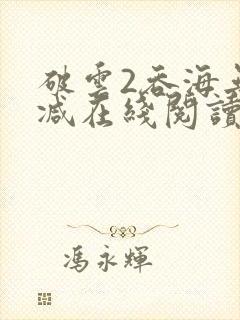 破雲2吞海
減在綫閱讀
馮永輝